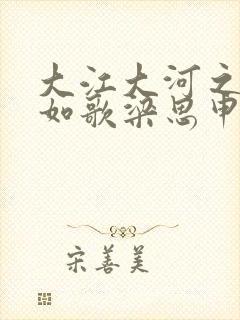 大江大河之
如歌梁思申
宋善美